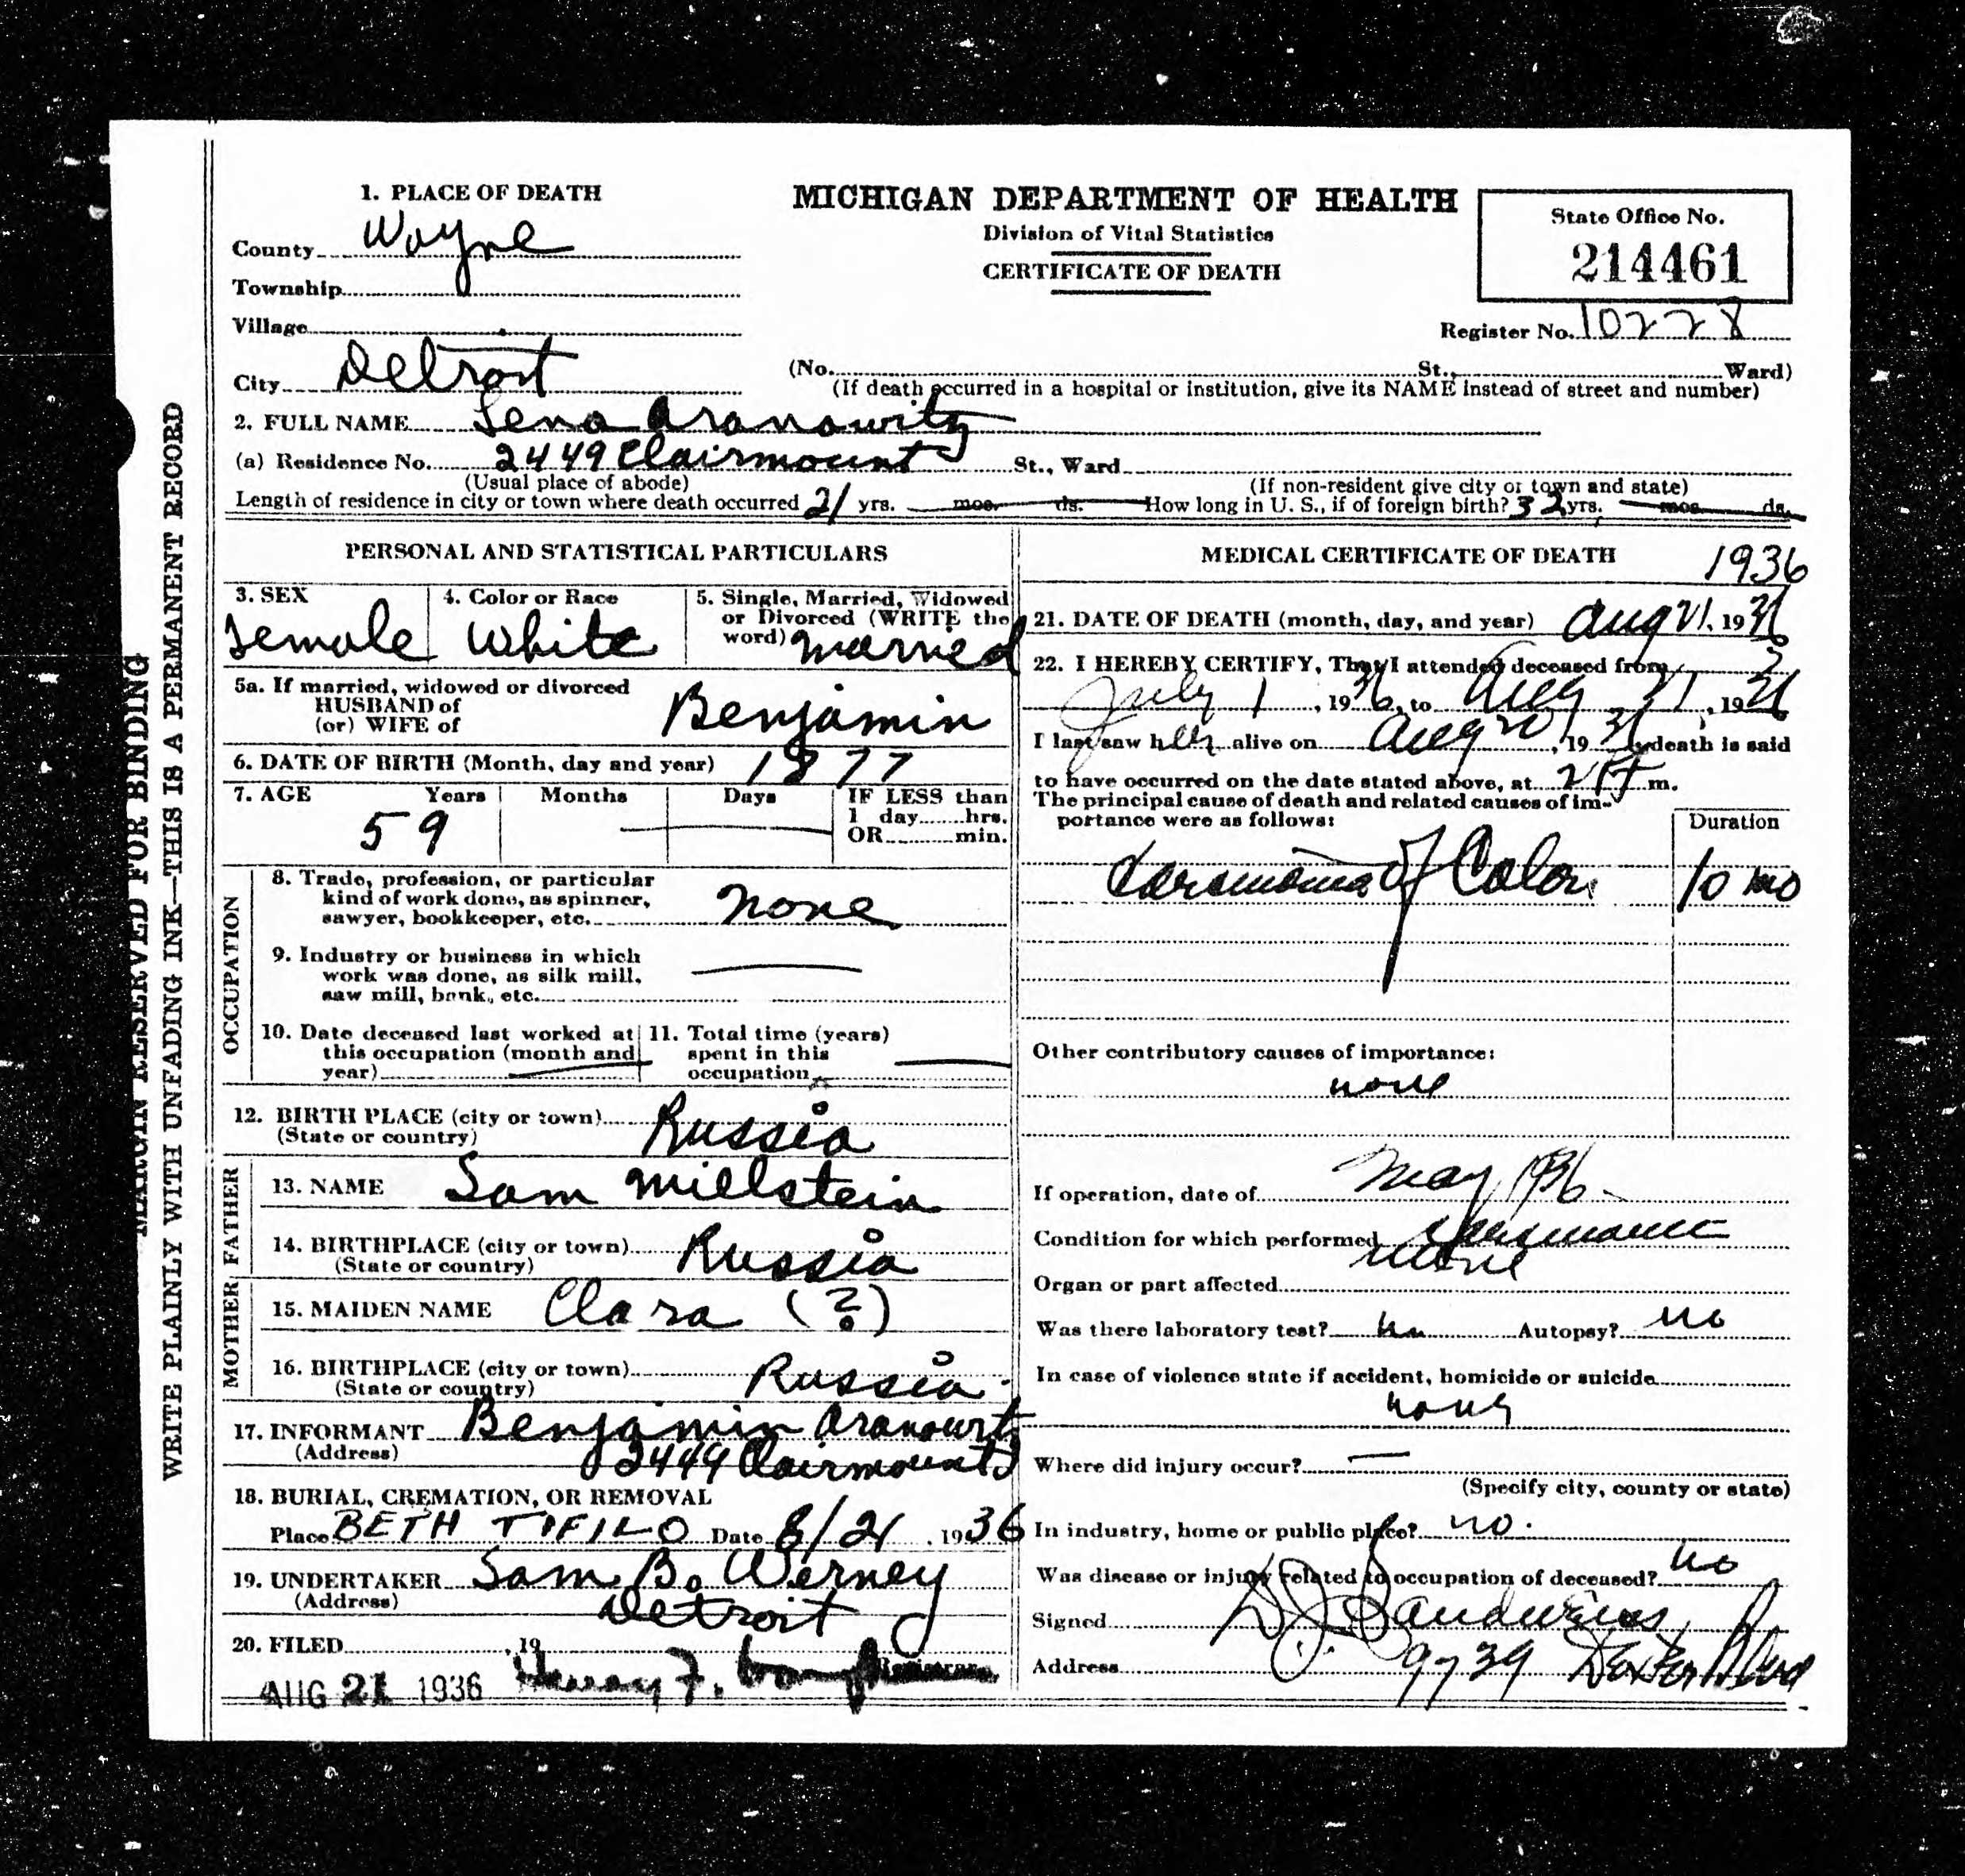 MARGIN RESERVED FOR BINDING
WRITE PLAINLY WITH UNFADING INK—THIS IS A PERMANENT RECORD
1. PLACE OF DEATH
County Wayne
Township
Village
City Detroit
MICHIGAN DEPARTMENT OF HEALTH
Division of Vital Statistics
CERTIFICATE OF DEATH
State Office No.
214461
Register No. 10228
(No. St., Ward)
(If death occurred in a hospital or institution, give its NAME instead of street and number)
2. FULL NAME Lena Aranowitz
(a) Residence No. 2449 Clairmount St., Ward
(Usual place of abode) (If non-resident give city or town and state)
Length of residence in city or town where death occurred 21 yrs. mos. ds. How long in U. S., if of foreign birth? 32 yrs. mos. ds.
PERSONAL AND STATISTICAL PARTICULARS
3. SEX
Female
4. Color or Race
White
5. Single, Married, Widowed
or Divorced (WRITE the
word) married
5a. If married, widowed or divorced
HUSBAND of
(or) WIFE of Benjamin
6. DATE OF BIRTH (Month, day and year) 1877
7. AGE Years Months Days IF LESS than
1 day hrs.
OR min.
59
OCCUPATION
8. Trade, profession, or particular
kind of work done, as spinner,
sawyer, bookkeeper, etc. none
9. Industry or business in which
work was done, as silk mill,
saw mill, bank, etc.
10. Date deceased last worked at
this occupation (month and
year)
11. Total time (years)
spent in this
occupation
12. BIRTH PLACE (city or town) Russia
(State or country)
FATHER
13. NAME Sam Millstein
14. BIRTHPLACE (city or town) Russia
(State or country)
MOTHER
15. MAIDEN NAME Clara (?)
16. BIRTHPLACE (city or town) Russia
(State or country)
17. INFORMANT Benjamin Aranowitz
(Address) 2449 Clairmount
18. BURIAL, CREMATION, OR REMOVAL
Place BETH TIFILO Date 8/21, 1936
19. UNDERTAKER Sam B. Werney
(Address) Detroit
20. FILED , 19
AUG 21 1936 Henry F. Registrar.
MEDICAL CERTIFICATE OF DEATH 1936
21. DATE OF DEATH (month, day, and year) Aug 21, 1936
22. I HEREBY CERTIFY, That I attended deceased from
July 1, 1936, to Aug 21, 1936
I last saw her alive on Aug 20, 1936, death is said
to have occurred on the date stated above, at 2 m.
The principal cause of death and related causes of im-
portance were as follows:
Duration
Carcinoma of Colon 10 mo
Other contributory causes of importance:
none
If operation, date of May 1936
Condition for which performed
Organ or part affected
Was there laboratory test? no Autopsy? no
In case of violence state if accident, homicide or suicide
none
Where did injury occur? —
(Specify city, county or state)
In industry, home or public place? no.
Was disease or injury related to occupation of deceased? no
Signed D. J. Sandweiss
Address 9739 Dexter Blvd